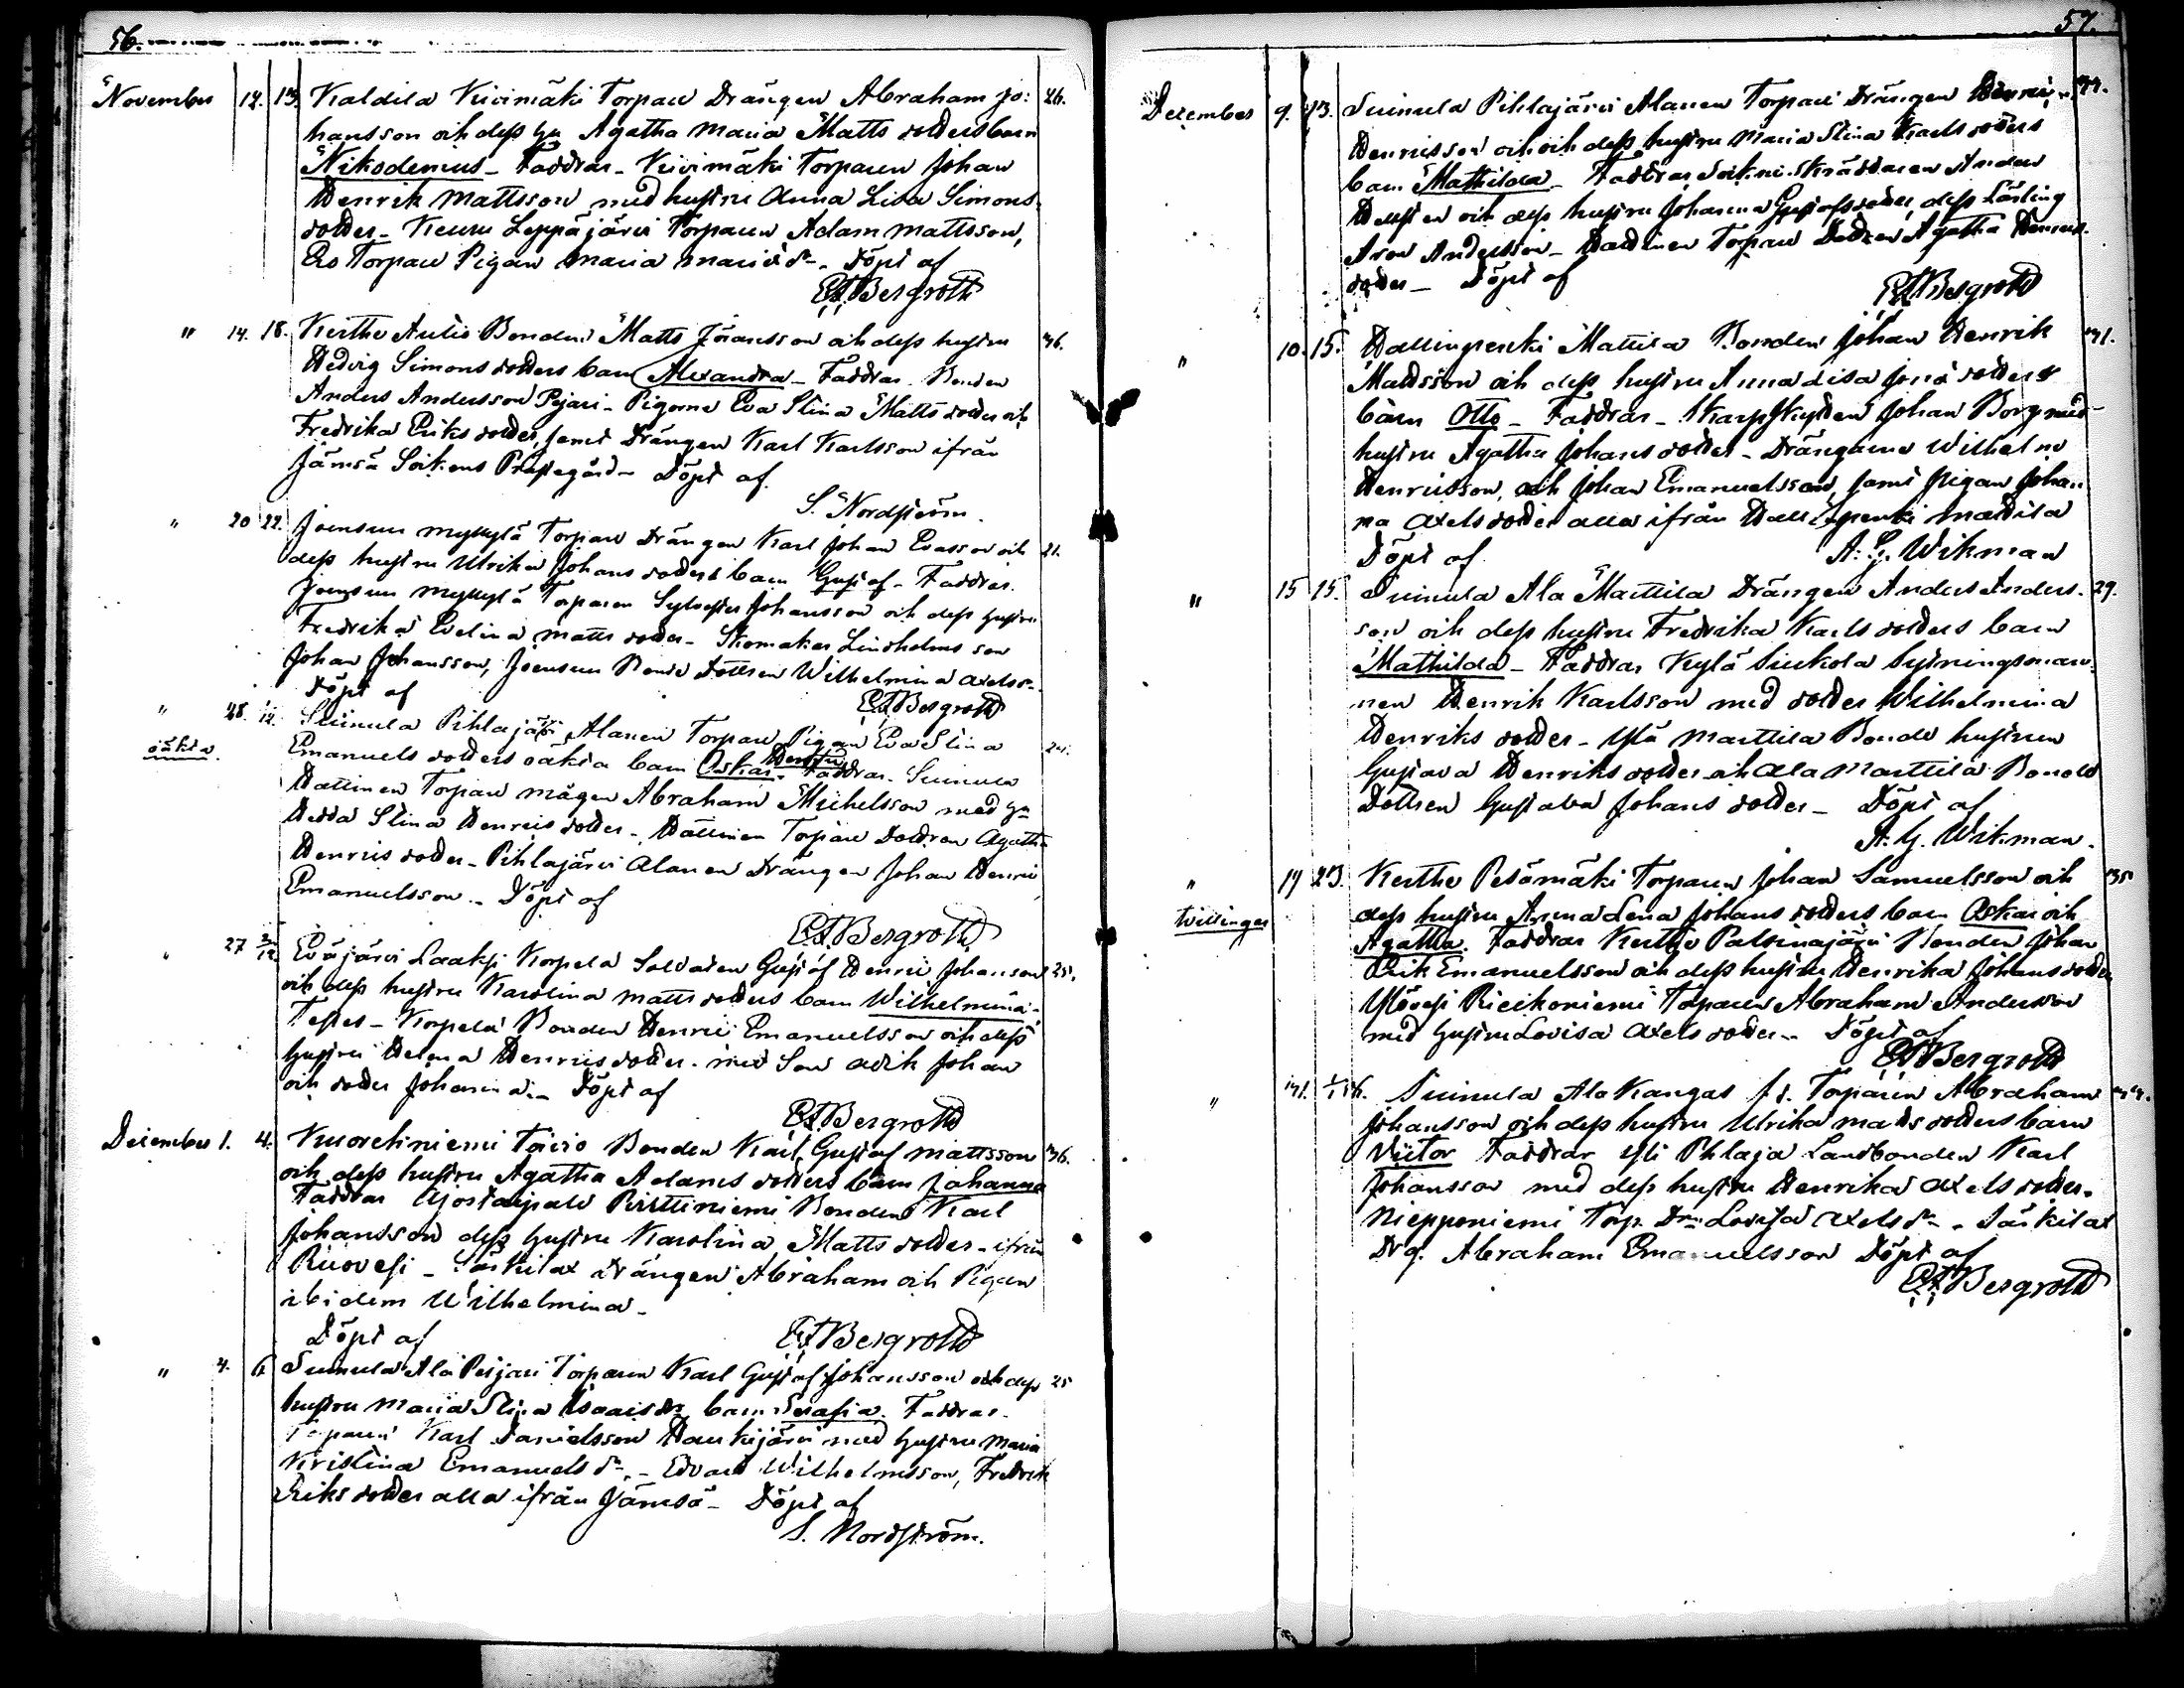 56.
November 12. 13. Kaldila Kivimäki Torpare Drängen Abraham Jo= 26.
hansson och dess hu Agatha Maria Matts dotters barn
Nikodemus - Faddrar - Kivimäki Torparen Johan
Henrik Mattsson med hustru Anna Lisa Simons
dotter - Keuru Leppäjärvi Torparen Adam Mattsson,
Ero Torpare Pigan Maria Mariæ dr. Döpt af
E A Bergroth
" 14. 18. Kerthe Anlio Bonden Matts Jöransson och dess hustru 36.
Hedvig Simons dotters barn Alexandra - Faddrar Bonden
Anders Andersson Pejari - Pigorna Eva Stina Matts dotter och
Fredrika Eriks dotter, samt Drängen Karl Karlsson ifrån
Jämsä Sockens Prestegård - Döpt af
S. Nordström.
" 20 22. Joensuu Myllylä Torpare Drängen Karl Johan Evasson och 21.
dess hustru Ulrika Johans dotters barn Gustaf - Faddrar
Joensuu Myllylä Torparen Sylvester Johansson och dess hustru
Fredrika Evelina Matts dotter - Skomakar Lindholms son
Johan Johansson, Joensuu Bonde Dottren Wilhelmina Axels dr.
Döpt af
E A Bergroth
" 28. Suinula Pihlajärvi Alanen Torpare Pigan Eva Stina
oäkta. Emanuels dotters oäkta barn Oskar Henrik Faddrar - Suinula
Hatinen Torpare mågen Abraham Michelsson med hu
Hedda Stina Henriks dotter - Hatinen Torpare Dottren Agatha
Henriks dotter - Pihlajärvi Alanen Drängen Johan Henric
Emanuelsson - Döpt af
E A Bergroth
" 27 Eväjärvi Laaksi Korpela Soldaten Gustaf Henric Johansson 25.
och dess hustru Karolina Matts dotters barn Wilhelmina -
Testes - Korpela Bonden Henric Emanuelsson och dess
hustru Helena Henriks dotter - med Son Johan
och dotter Johanna - Döpt af
E A Bergroth
December 1. 4. Kuorehniemi Toivio Bonden Karl Gustaf Mattsson 36.
och dess hustru Agatha Adams dotters barn Johanna
Faddrar Pirttiniemi Bonden Karl
Johansson dess hustru Karolina Matts dotter - ifrån
Ruovesi - Säkilax drängen Abraham och Pigan
ibidem Wilhelmina -
Döpt af E A Bergroth
" 4. 6 Suinula Ala Peijari Torparen Karl Gustaf Johansson och dess 25
hustru Maria Stina Isaacs dr barn Serafia. Faddrar -
Torparen Karl Danielsson Haukijärvi med hustru Maria
Kristina Emanuels dr. - Edvard Wilhelmsson, Fredrik
Eriks dotter alla ifrån Jämsä - Döpt af
S. Nordström.
57.
December 9. 13. Suinula Pihlajärvi Alanen Torpare Drängen Henric
Henricsson och dess hustru Maria Stina Karls dotters
barn Mathilda - Faddrar Sockne Skräddaren Anders
och dess hustru Johanna Gustafs dotter, dess Lärling
Aron Andersson - Torpare Dottren Agatha Henriks
dotter - Döpt af
E A Bergroth
" 10. 15. Hallinpenki Mattila Bonden Johan Henrik 41.
Mattsson och dess hustru Anna Lisa Jonæ dotters
barn Otto - Faddrar - Skarpskytten Johan Borg med
hustru Agatha Johans dotter - Drängarne Wilhelm
Henricsson, och Johan Emanuelsson, samt Pigan Johan
na Axels dotter alla ifrån Hallinpenki Mattila
Döpt af A. G. Wikman
" 15 15. Suinula Ala Marttila Drängen Anders Anders- 29.
son och dess hustru Fredrika Karls dotters barn
Mathilda - Faddrar Kylä Siukola Sytningsman-
nen Henrik Karlsson med dotter Wilhelmina
Henriks dotter - Ylä Marttila Bonde hustrun
Gustava Henriks dotter och Ala Marttila Bonde
Dottren Gustava Johans dotter - Döpt af
A. G. Wikman.
" 19 23. Kerthe Pesämäki Torparen Johan Samuelsson och 35
tvillingar dess hustru Anna Lena Johans dotters barn Oskar och
Agatha. Faddrar Kerthe Palsinajärvi Bonden Johan
Erik Emanuelsson och dess hustru Henrika Johans dotter
Torparen Abraham Andersson
med hustru Lovisa Axels dotter - Döpt af
E A Bergroth
" Suinula Ala Kangas Torparen Abraham
Johansson och dess hustru Ulrika Matts dotters barn
Victor Faddrar Yli Pihlaja Landbonden Karl
Johansson med dess hustru Henrika Axels dotter -
Niepponiemi Torp. Drn Lovisa Axels dr - Säkilax
Drg. Abraham Emanuelsson Döpt af
E A Bergroth